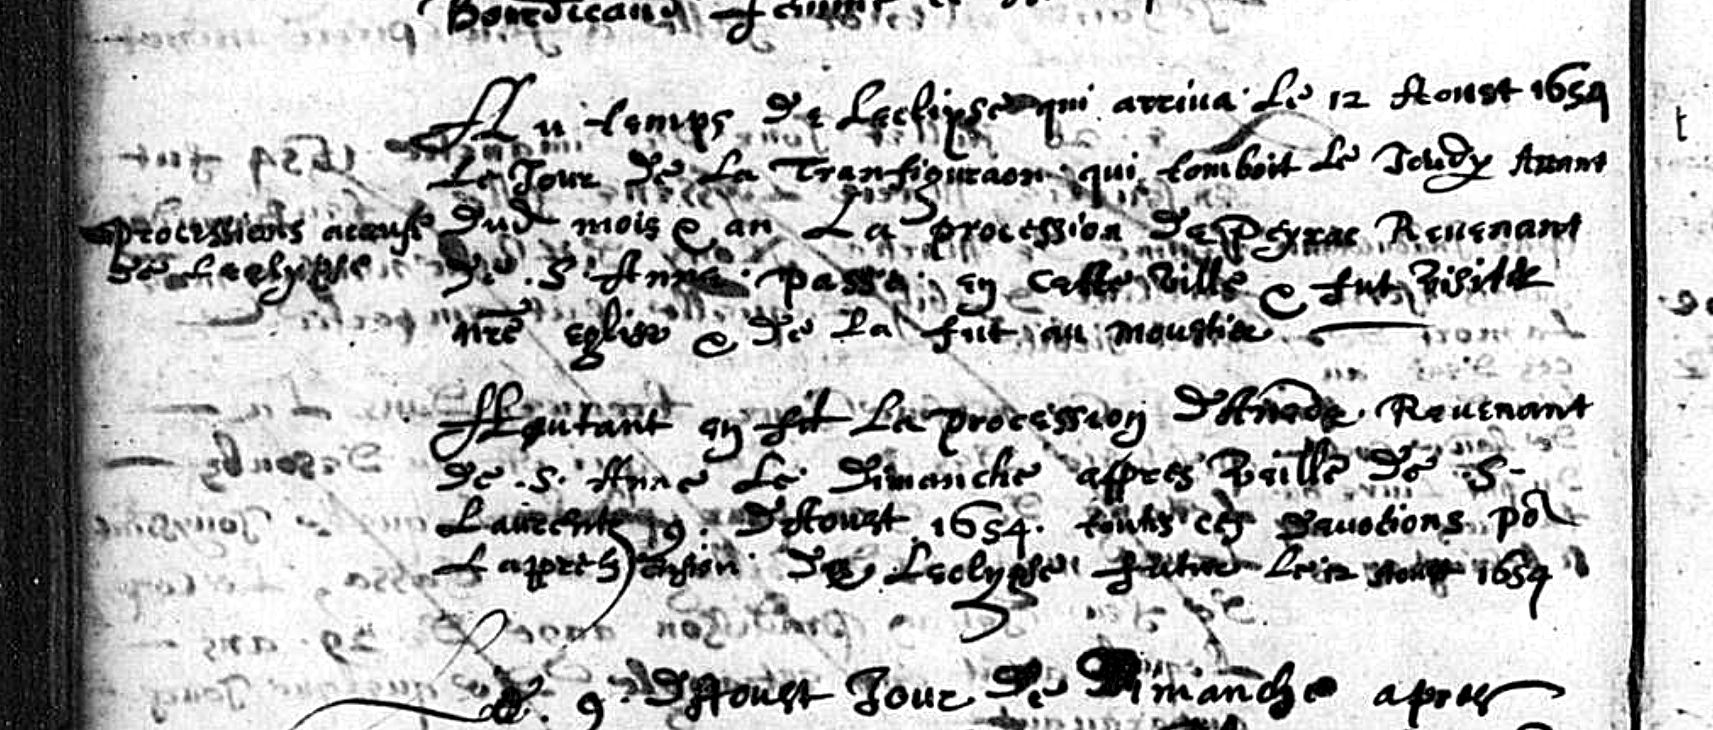 Au temps de Leclipse qui arriva le 12 Aoust 1654
Le Jour de La Transfiguraon qui tomboit le Jeudy Avant
processions à cause
de Leclypse
dud mois & an La procession de Peyrac Revenant
de S. Anne passa en cette ville & fut visiter
nre eglise & de La fut au moustier
Autant en fit La procession Revenant
de .S. Anne Le Dimanche appres Veille de S.
Laurents 9. D'Aoust .1654. toutes ces devotions po
L'apprehension de Leclypse future Le 12 Aoust 1654
Le . 9. D'Aoust Jour de Dimanche apres